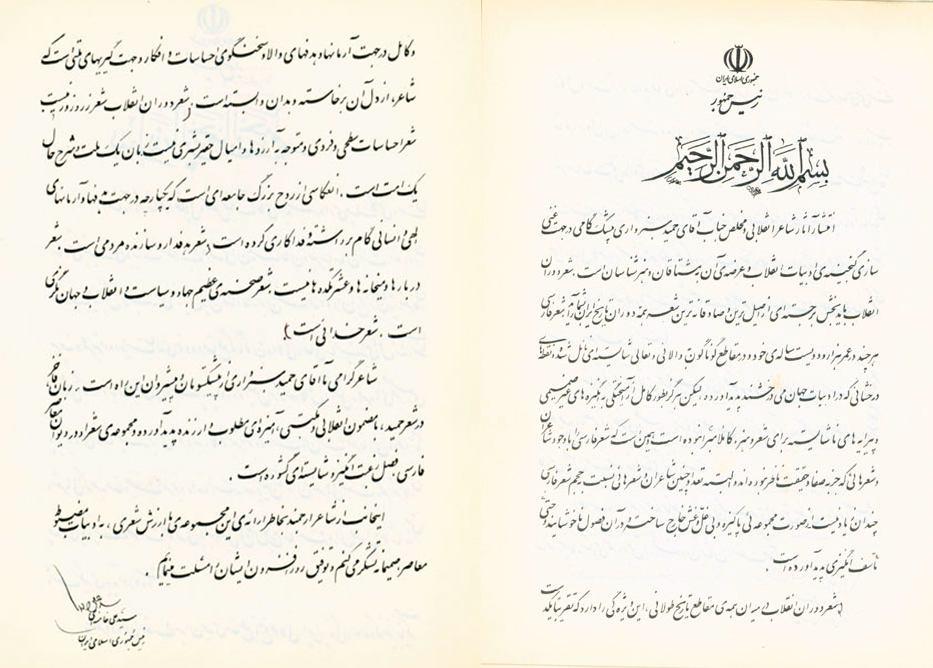 جمهوری اسلامی ایران
رئیس جمهور
بسم الله الرحمن الرحیم
انتشار آثار شاعر انقلابی و مخلص جناب آقای حمید سبزواری بیشک گامی در جهت غنی
سازی گنجینه‌ی ادبیات انقلاب و عرضه‌ی آن به مشتاقان و هنرشناسان است. شعر دوران
انقلاب ما بخش برجسته‌ای از اصیل ترین و صادقانه ترین شعر همه دوران تاریخ ایران است. شعر فارسی
هر چند در عمر هزار و دویست ساله‌ی خود و در مقاطع گوناگون والائی و تعالی شایسته‌ای نائل شده و نقطه‌های
درخشانی که در ادبیات جهان می درخشند پدید آورده، لیکن هرگز بطور کامل از آمیختگی به انگیزه های غیر صمیمی
و پیرایه های ناشایسته برای شعر و هنر، کاملا مبرا نبوده است. همین است که شعر فارسی با وجود شاعران
و شعرهائی که جز به صفا و حقیقت نافرخوره اند و البته تعداد چنین شاعران و شعرهائی نسبت به حجم شعر فارسی
چندان زیاد نیست از صورت مجموعه ئی پاکیزه و بی غل و غش خارج ساخته و در آن فصول ناخوشایند و حتی
تأسف انگیزی پدید آورده است.
شعر دوران انقلاب در میان همه‌ی مقاطع تاریخ طولانی، این ویژگی را دارد که تقریبا یکدست
و کامل در جهت آرمانها و هدفهای والا و سخنگوی احساسات و افکار و جهت گیریهای ملتی است که
شاعر، از دل آن برخاسته و بدان وابسته است. شعر دوران انقلاب شعر زر و زور نیست
شعر احساسات سطحی و فردی و متوجه به آرزوها و امیال حقیر بشری نیست زبان یک ملت و شرح حال
یک امت است. انعکاسی از روح بزرگ جامعه‌ای است که یکپارچه در جهت هدفها و آرمانهای
الهی و انسانی گام برداشته و فداکاری کرده است. شعر هدفدار و سازنده و مردمی است. شعر
دربارها و میخانه ها و عشرتکده ها نیست. شعر صحنه‌ی عظیم جهاد و سیاست و انقلاب و جهان نگری
است. شعر خدائی است.
شاعر گرامی ما آقای حمید سبزواری از پیشکسوتان و پیشروان این راه است. زبان فاخر
در شعر حمید، با مضمون انقلابی و مکتبی، آمیزه‌ی مطلوب و ارزنده پدید آورده و مجموعه‌ی شعر او در دیوان معاصر
فارسی، فصل رغبت انگیز و شایسته‌ای گشوده است.
اینجانب از شاعر ارجمند بخاطر ارائه‌ی این مجموعه‌ی با ارزش شعری، به ادبیات مضبوط
معاصر صمیمانه تشکر می کنم و توفیق روزافزون ایشان را مسئلت مینمایم.
سید علی خامنه‌ای
رئیس جمهوری اسلامی ایران